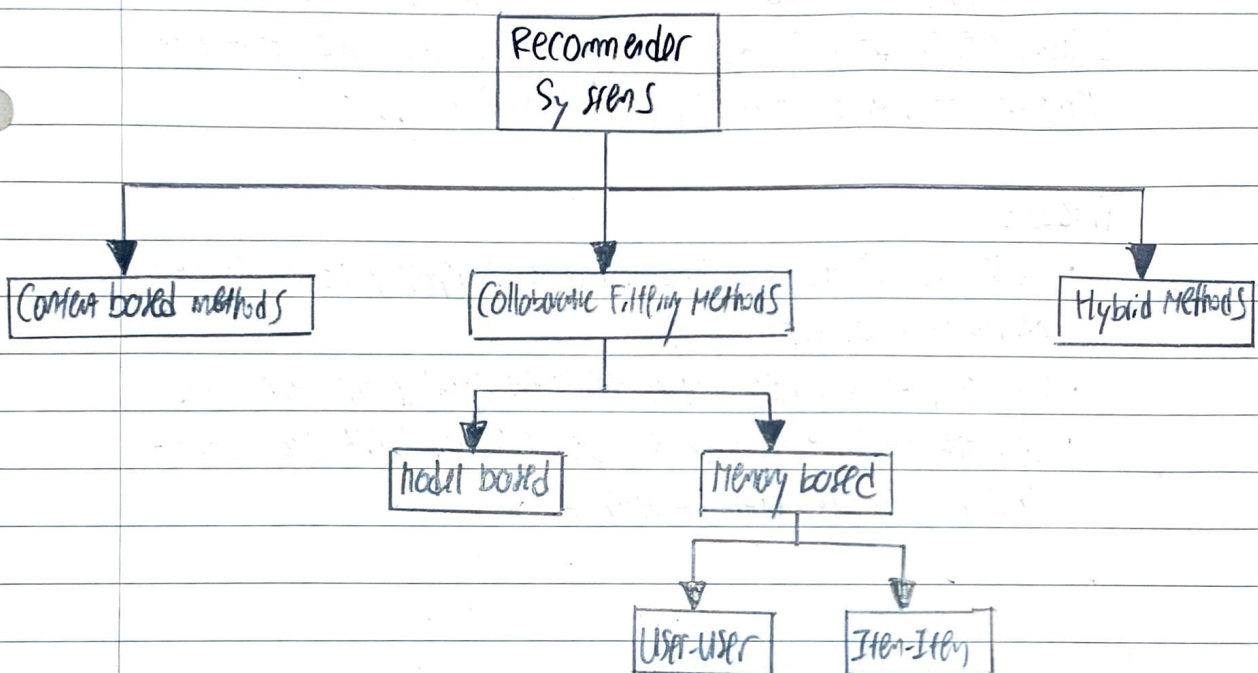 Recommender
Systems
Content based methods
Collaborative Filtering Methods
Hybrid Methods
Model based
Memory based
User-User
Item-Item